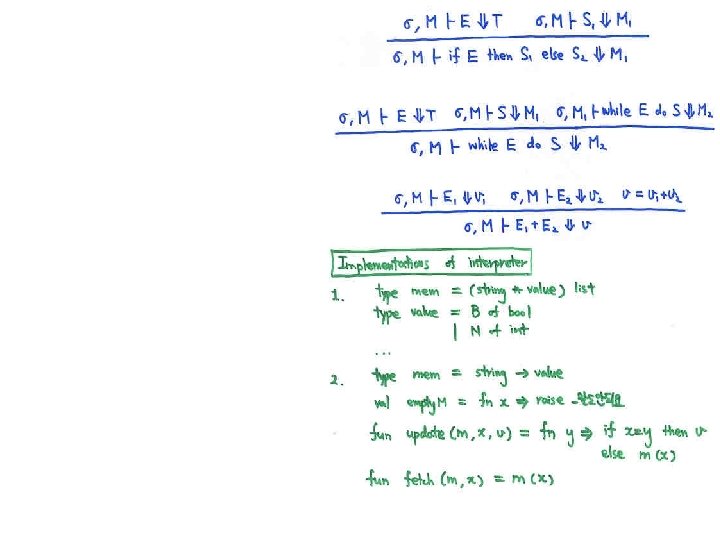 σ, M ⊢ E ⇓ T   σ, M ⊢ S₁ ⇓ M₁
σ, M ⊢ if E then S₁ else S₂ ⇓ M₁
σ, M ⊢ E ⇓ T   σ, M ⊢ S ⇓ M₁   σ, M₁ ⊢ while E do S ⇓ M₂
σ, M ⊢ while E do S ⇓ M₂
σ, M ⊢ E₁ ⇓ v₁   σ, M ⊢ E₂ ⇓ v₂   v = v₁+v₂
σ, M ⊢ E₁+E₂ ⇓ v
Implementations of interpreter
1. type mem = (string * value) list
type value = B of bool
| N of int
...
2. type mem = string → value
val emptyM = fn x ⇒ raise
fun update (m, x, v) = fn y ⇒ if x=y then v
else m (x)
fun fetch (m, x) = m (x)